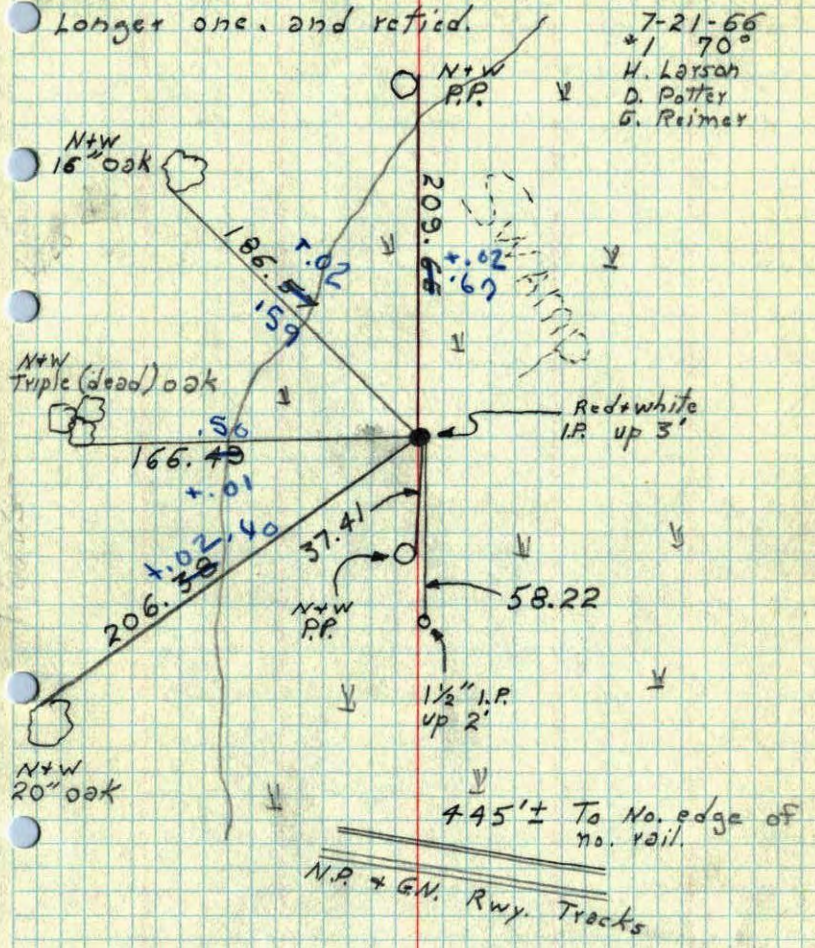 Longer one. and retied.
7-21-66
#1 70°
H. Larson
D. Potter
G. Reimer
N+W
P.P.
N+W
16" oak
209.66
+.02
.67
SWAMP
186.57
+.02
.59
N+W
Triple (dead) oak
.50
166.49
+.01
Red+white
I.P. up 3'
+.02 .40
206.38
37.41
N+W
P.P.
58.22
1½" I.P.
up 2'
N+W
20" oak
445'± To No. edge of
no. rail.
N.P. & G.N. Rwy. Tracks